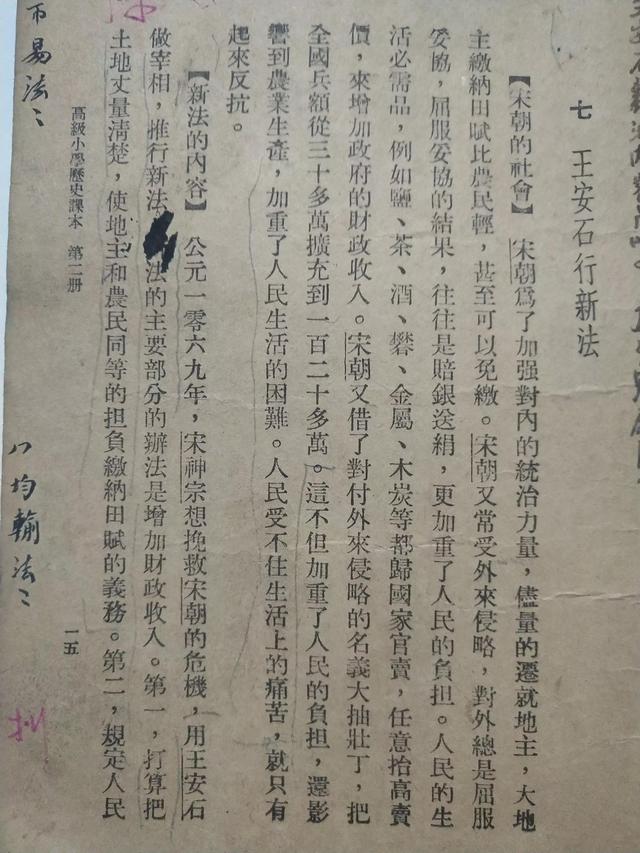 七　王安石行新法
【宋朝的社會】　宋朝爲了加强對內的統治力量，儘量的遷就地主，大地
主繳納田賦比農民輕，甚至可以免繳。宋朝又常受外來侵略，對外總是屈服
妥協，屈服妥協的結果，往往是賠銀送絹，更加重了人民的負担。人民的生
活必需品，例如鹽、茶、酒、礬、金屬、木炭等都歸國家官賣，任意抬高賣
價，來增加政府的財政收入。宋朝又借了對付外來侵略的名義大抽壯丁，把
全國兵額從三十多萬擴充到一百二十多萬。這不但加重了人民的負担，還影
響到農業生產，加重了人民生活的困難。人民受不住生活上的痛苦，就只有
起來反抗。
【新法的內容】　公元一零六九年，宋神宗想挽救宋朝的危機，用王安石
做宰相，推行新法法的主要部分的辦法是增加財政收入。第一，打算把
土地丈量清楚，使地主和農民同等的担負繳納田賦的義務。第二，規定人民
高級小學歷史課本　第二册
一五
市易法：
均輸法：